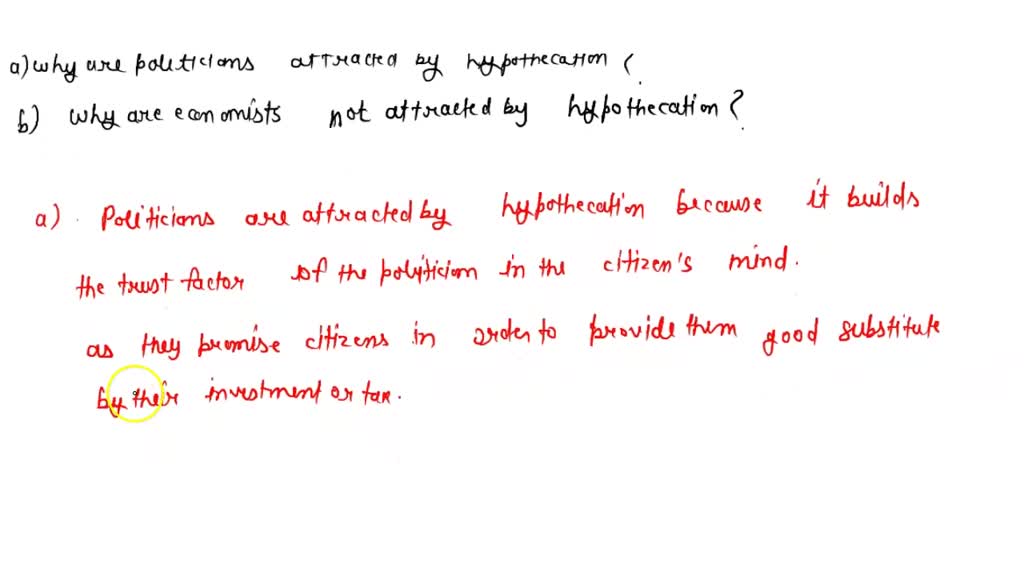 a) why are politicians attracted by hypothecation ?
b) why are economists not attracted by hypothecation ?
a). Politicians are attracted by hypothecation because it builds
the trust factor of the politician in the citizen's mind.
as they promise citizens in order to provide them good substitute
by their investment or tax.